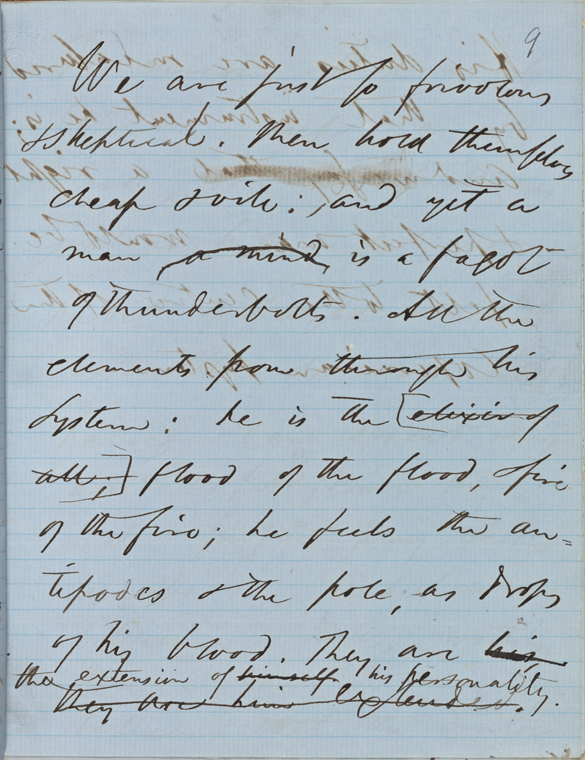 9
We are just so frivolous
& skeptical. Men hold themselves
cheap & vile; and yet a
man a mind is a fagot
of thunderbolts. All the
elements pour through his
system: he is the [elixir of
all;] flood of the flood, & fire
of the fire; he feels the an=
tipodes & the pole, as drops
of his blood. They are his
the extension of himself. his personality.
they are him extended.